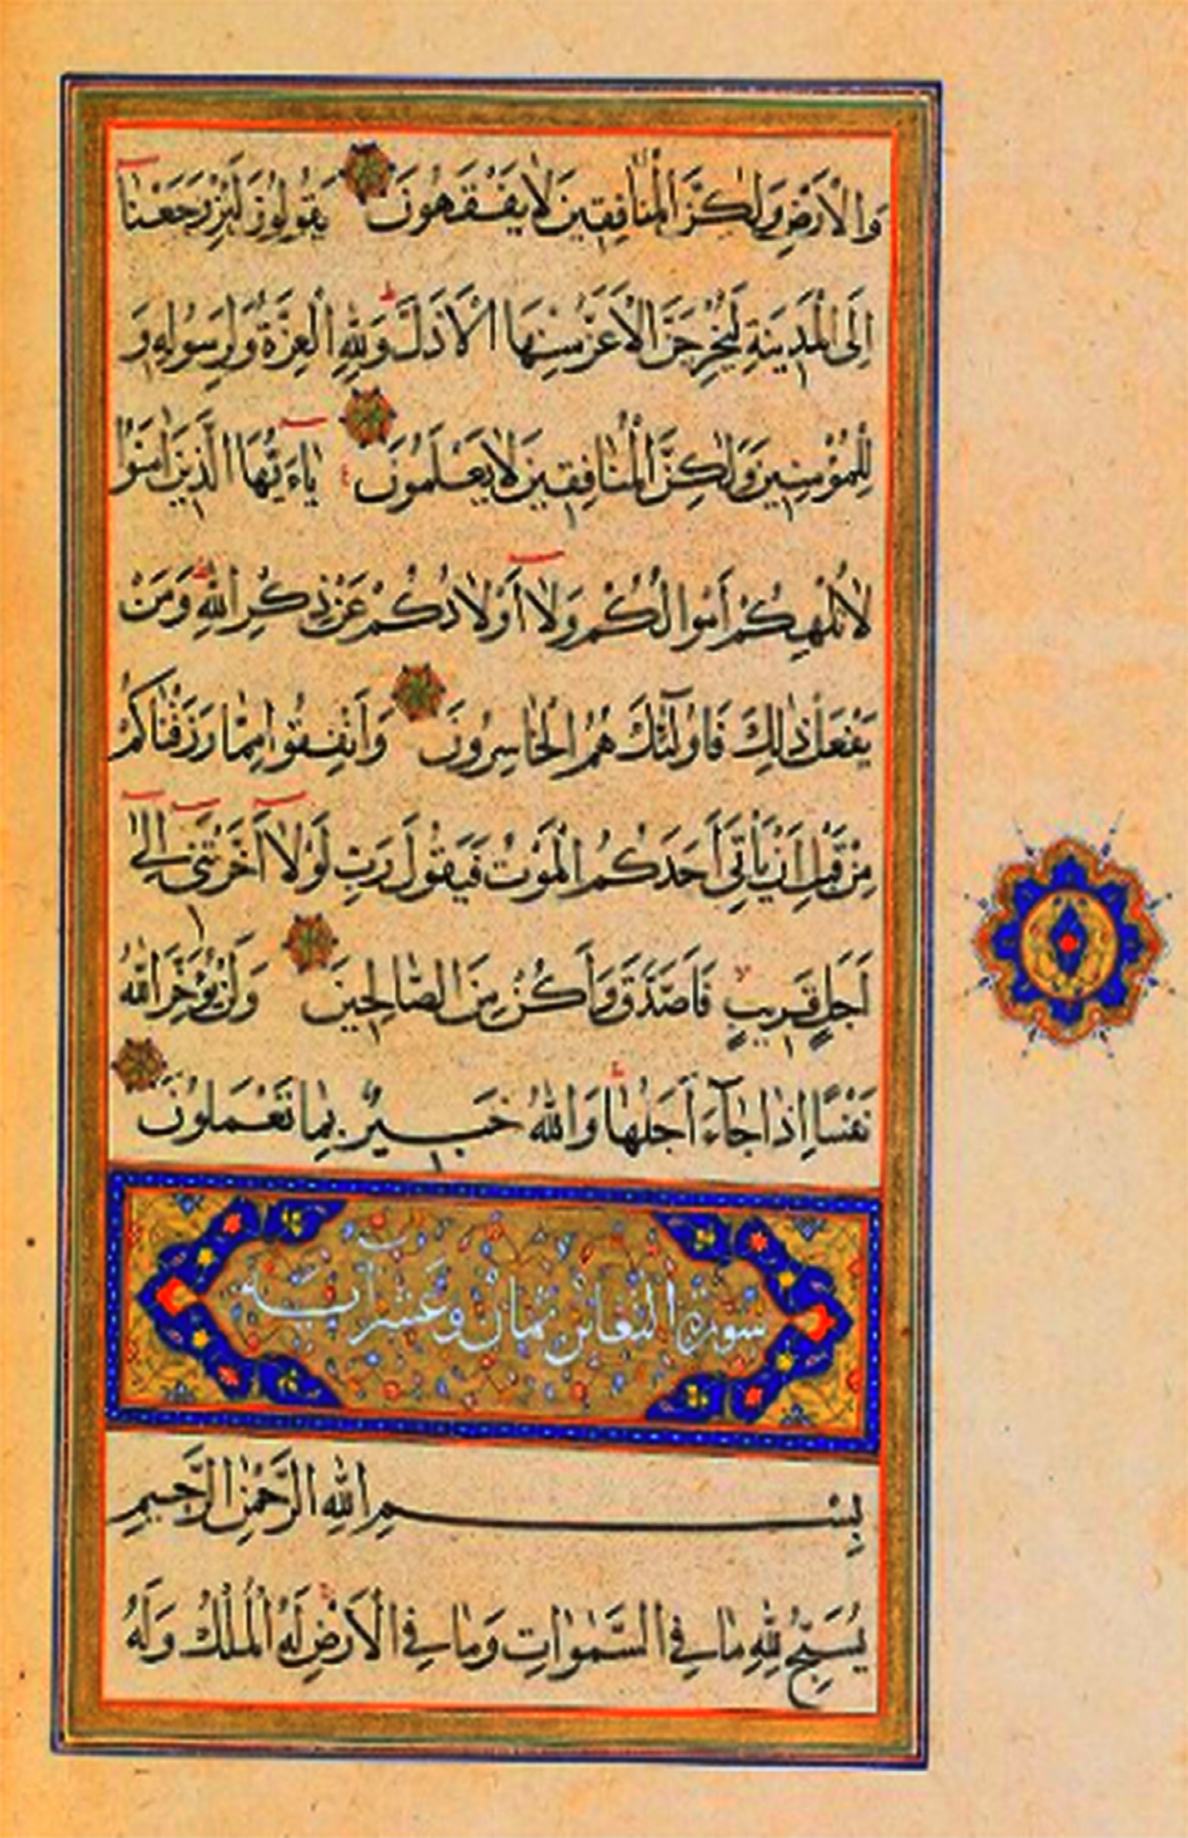 وَالْاَرْضِ وَلٰكِنَّ الْمُنَافِقِينَ لَا يَفْقَهُونَ يَقُولُونَ لَئِنْ رَجَعْنَا
اِلَى الْمَدِينَةِ لَيُخْرِجَنَّ الْاَعَزُّ مِنْهَا الْاَذَلَّ وَلِلّٰهِ الْعِزَّةُ وَلِرَسُولِهِ وَ
لِلْمُؤْمِنِينَ وَلٰكِنَّ الْمُنَافِقِينَ لَا يَعْلَمُونَ يَاءَيُّهَا الَّذِينَ اٰمَنُوا
لَا تُلْهِكُمْ اَمْوَالُكُمْ وَلَا اَوْلَادُكُمْ عَنْ ذِكْرِ اللّٰهِ وَمَنْ
يَفْعَلْ ذٰلِكَ فَاُولٰئِكَ هُمُ الْخَاسِرُونَ وَاَنْفِقُوا مِمَّا رَزَقْنَاكُمْ
مِنْ قَبْلِ اَنْ يَأْتِيَ اَحَدَكُمُ الْمَوْتُ فَيَقُولَ رَبِّ لَوْلَا اَخَّرْتَنِي اِلٰى
اَجَلٍ قَرِيبٍ فَاَصَّدَّقَ وَاَكُنْ مِنَ الصَّالِحِينَ وَلَنْ يُؤَخِّرَ اللّٰهُ
نَفْسًا اِذَا جَآءَ اَجَلُهَا وَاللّٰهُ خَبِيرٌ بِمَا تَعْمَلُونَ
سورة التغابن ثمان وعشر آية
بِسْمِ اللّٰهِ الرَّحْمٰنِ الرَّحِيمِ
يُسَبِّحُ لِلّٰهِ مَا فِي السَّمٰوَاتِ وَمَا فِي الْاَرْضِ لَهُ الْمُلْكُ وَلَهُ